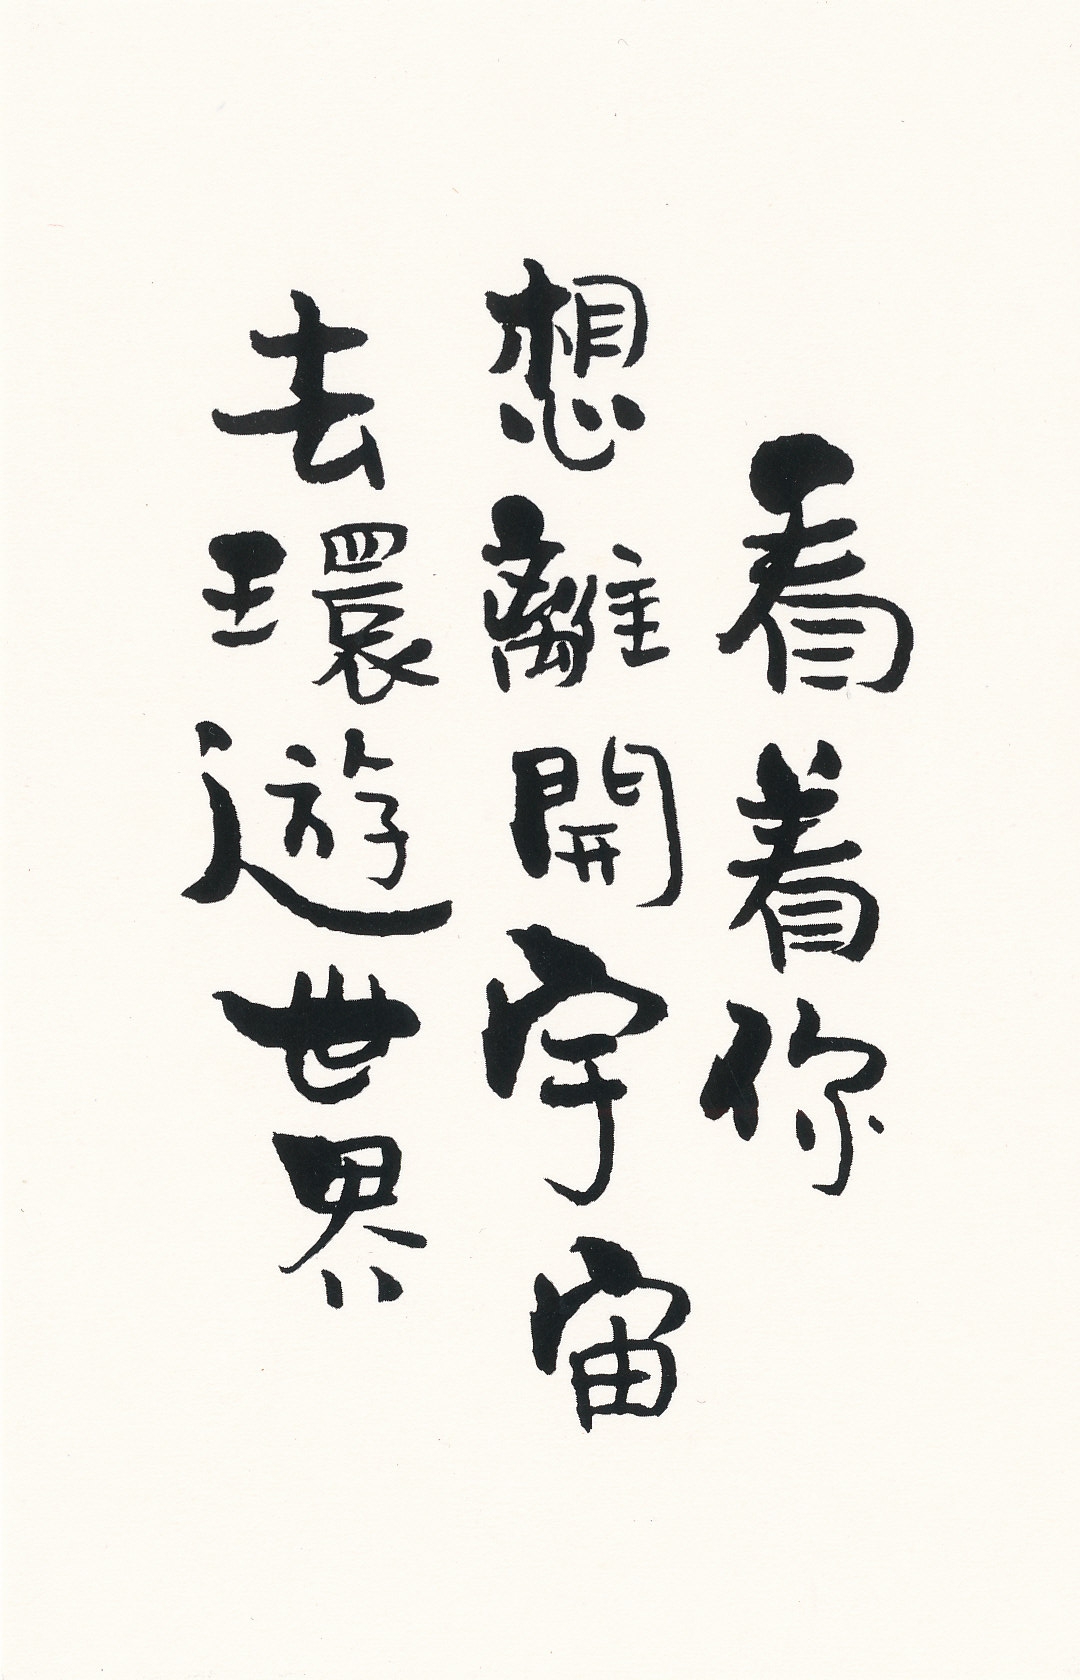 看着你
想離開宇宙
去環遊世界